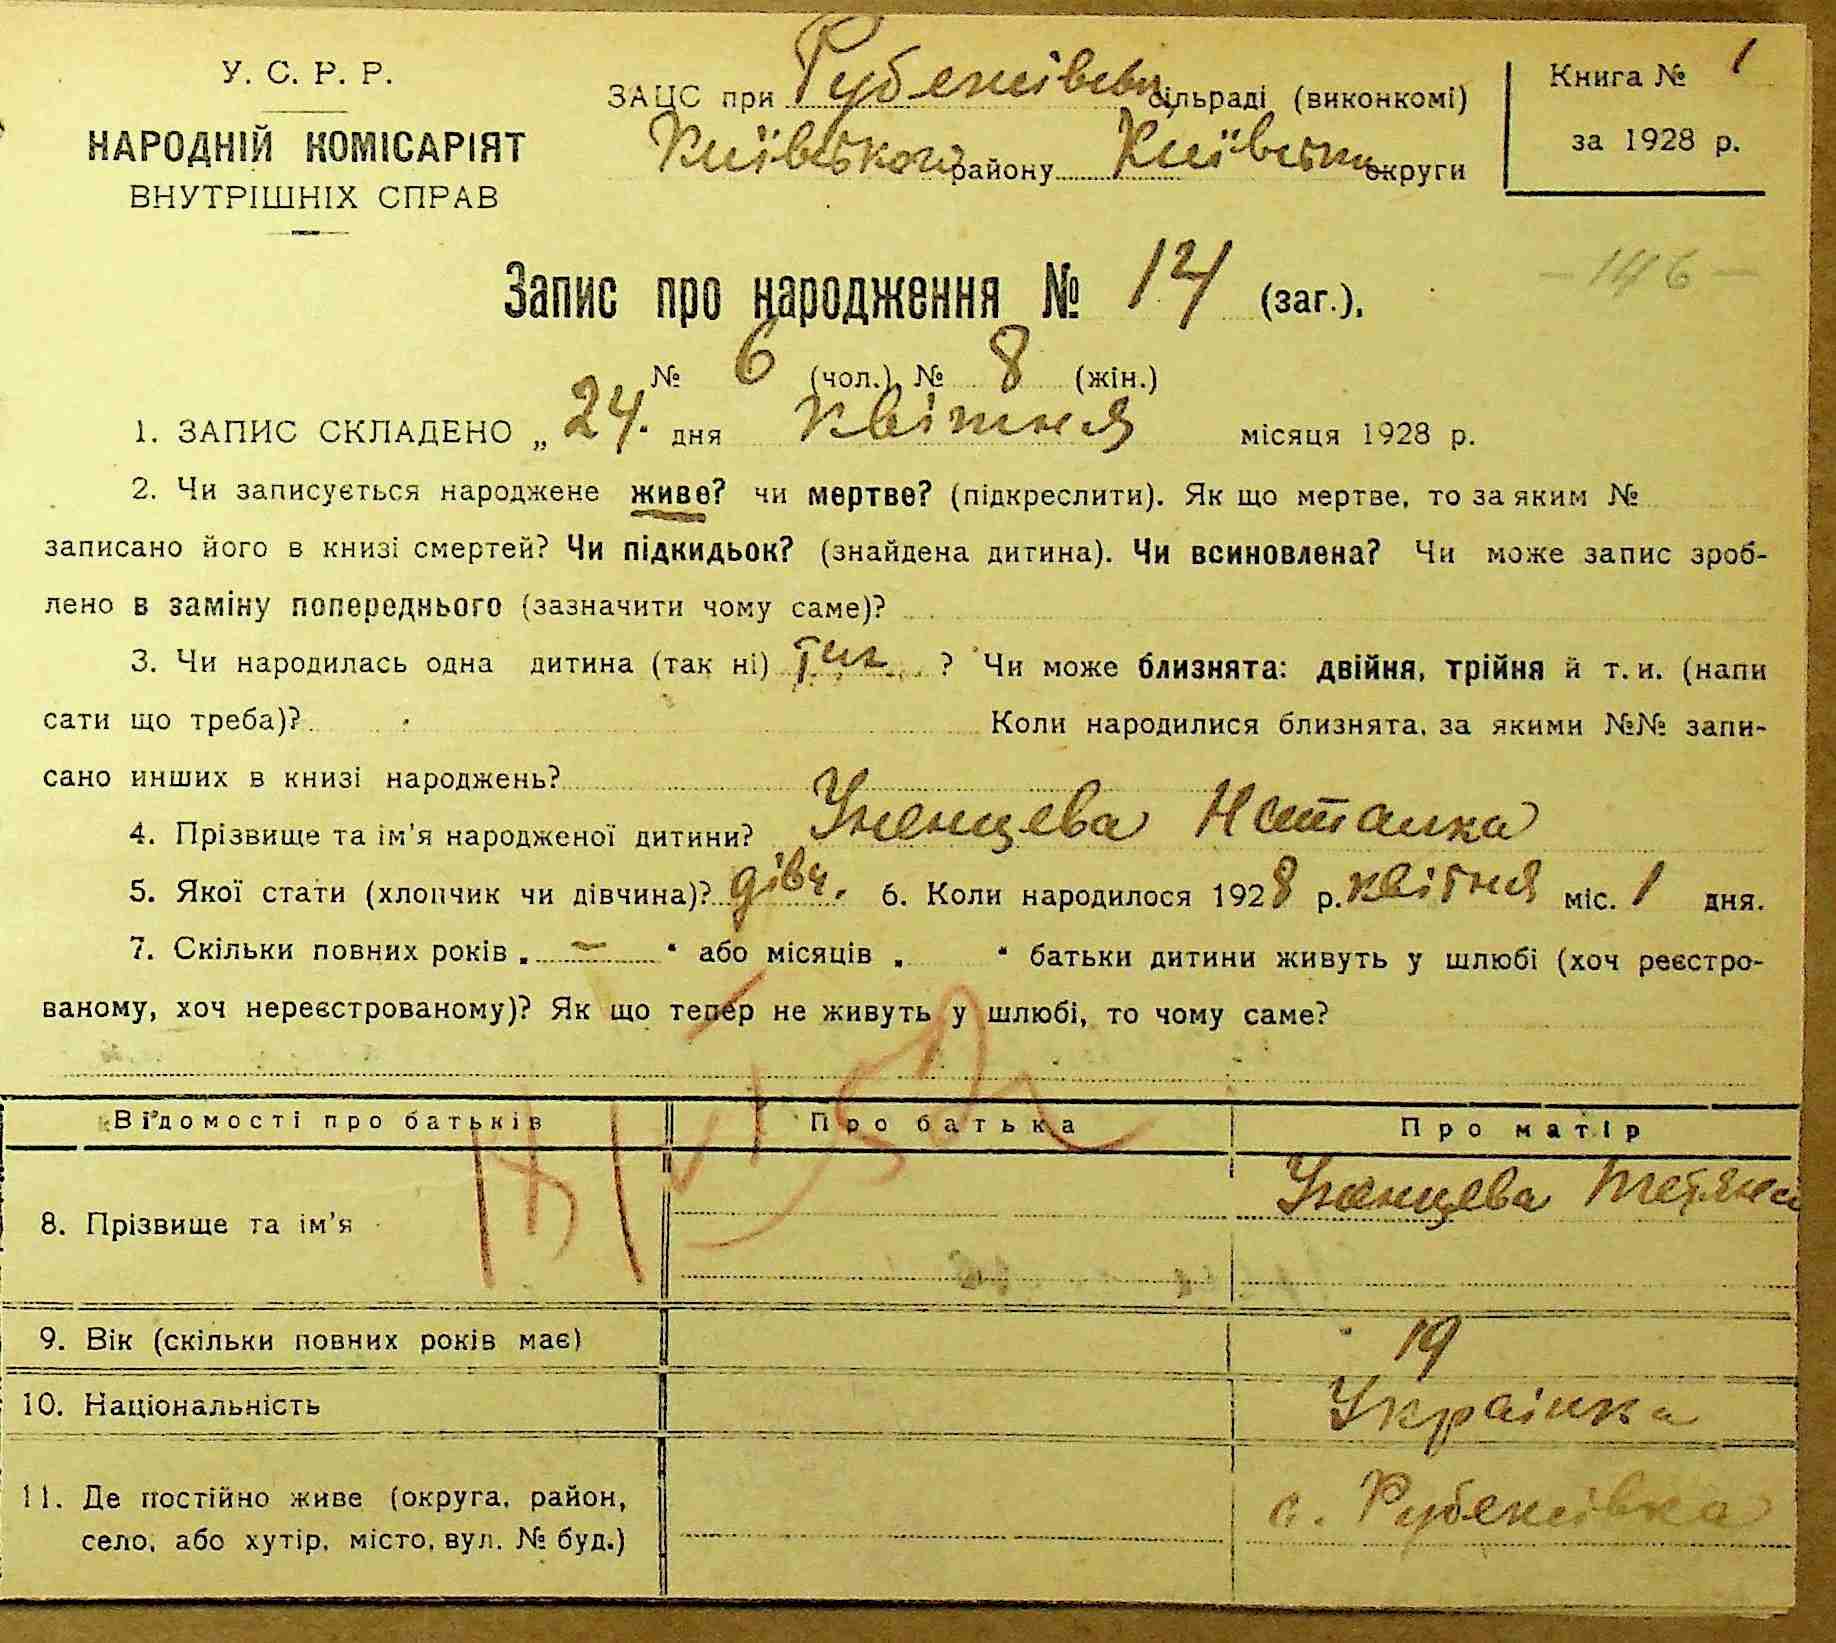 У. С. Р. Р.
НАРОДНІЙ КОМІСАРІЯТ
ВНУТРІШНІХ СПРАВ
ЗАЦС при Рубежівській сільраді (виконкомі)
Київського району Київської округи
Книга № 1
за 1928 р.
Запис про народження № 14 (заг.),
– 146 –
№ 6 (чол.) № 8 (жін.)
1. ЗАПИС СКЛАДЕНО „ 24. дня квітня місяця 1928 р.
2. Чи записується народжене живе? чи мертве? (підкреслити). Як що мертве, то за яким №
записано його в книзі смертей? Чи підкидьок? (знайдена дитина). Чи всиновлена? Чи може запис зроб-
лено в заміну попереднього (зазначити чому саме)?
3. Чи народилась одна дитина (так ні) так ? Чи може близнята: двійня, трійня й т. и. (напи
сати що треба)? Коли народилися близнята, за якими №№ запи-
сано инших в книзі народжень?
4. Прізвище та ім'я народженої дитини? Уженцева Наталка
5. Якої стати (хлопчик чи дівчина)? дівч. 6. Коли народилося 1928 р. квітня міс. 1 дня.
7. Скільки повних років „ – " або місяців „ " батьки дитини живуть у шлюбі (хоч реєстро-
ваному, хоч нереєстрованому)? Як що тепер не живуть у шлюбі, то чому саме?
Відомості про батьків Про батька Про матір
8. Прізвище та ім'я Уженцева Тетяна
9. Вік (скільки повних років має) 19
10. Національність Українка
11. Де постійно живе (округа, район, с. Рубежівка
село, або хутір, місто, вул. № буд.)